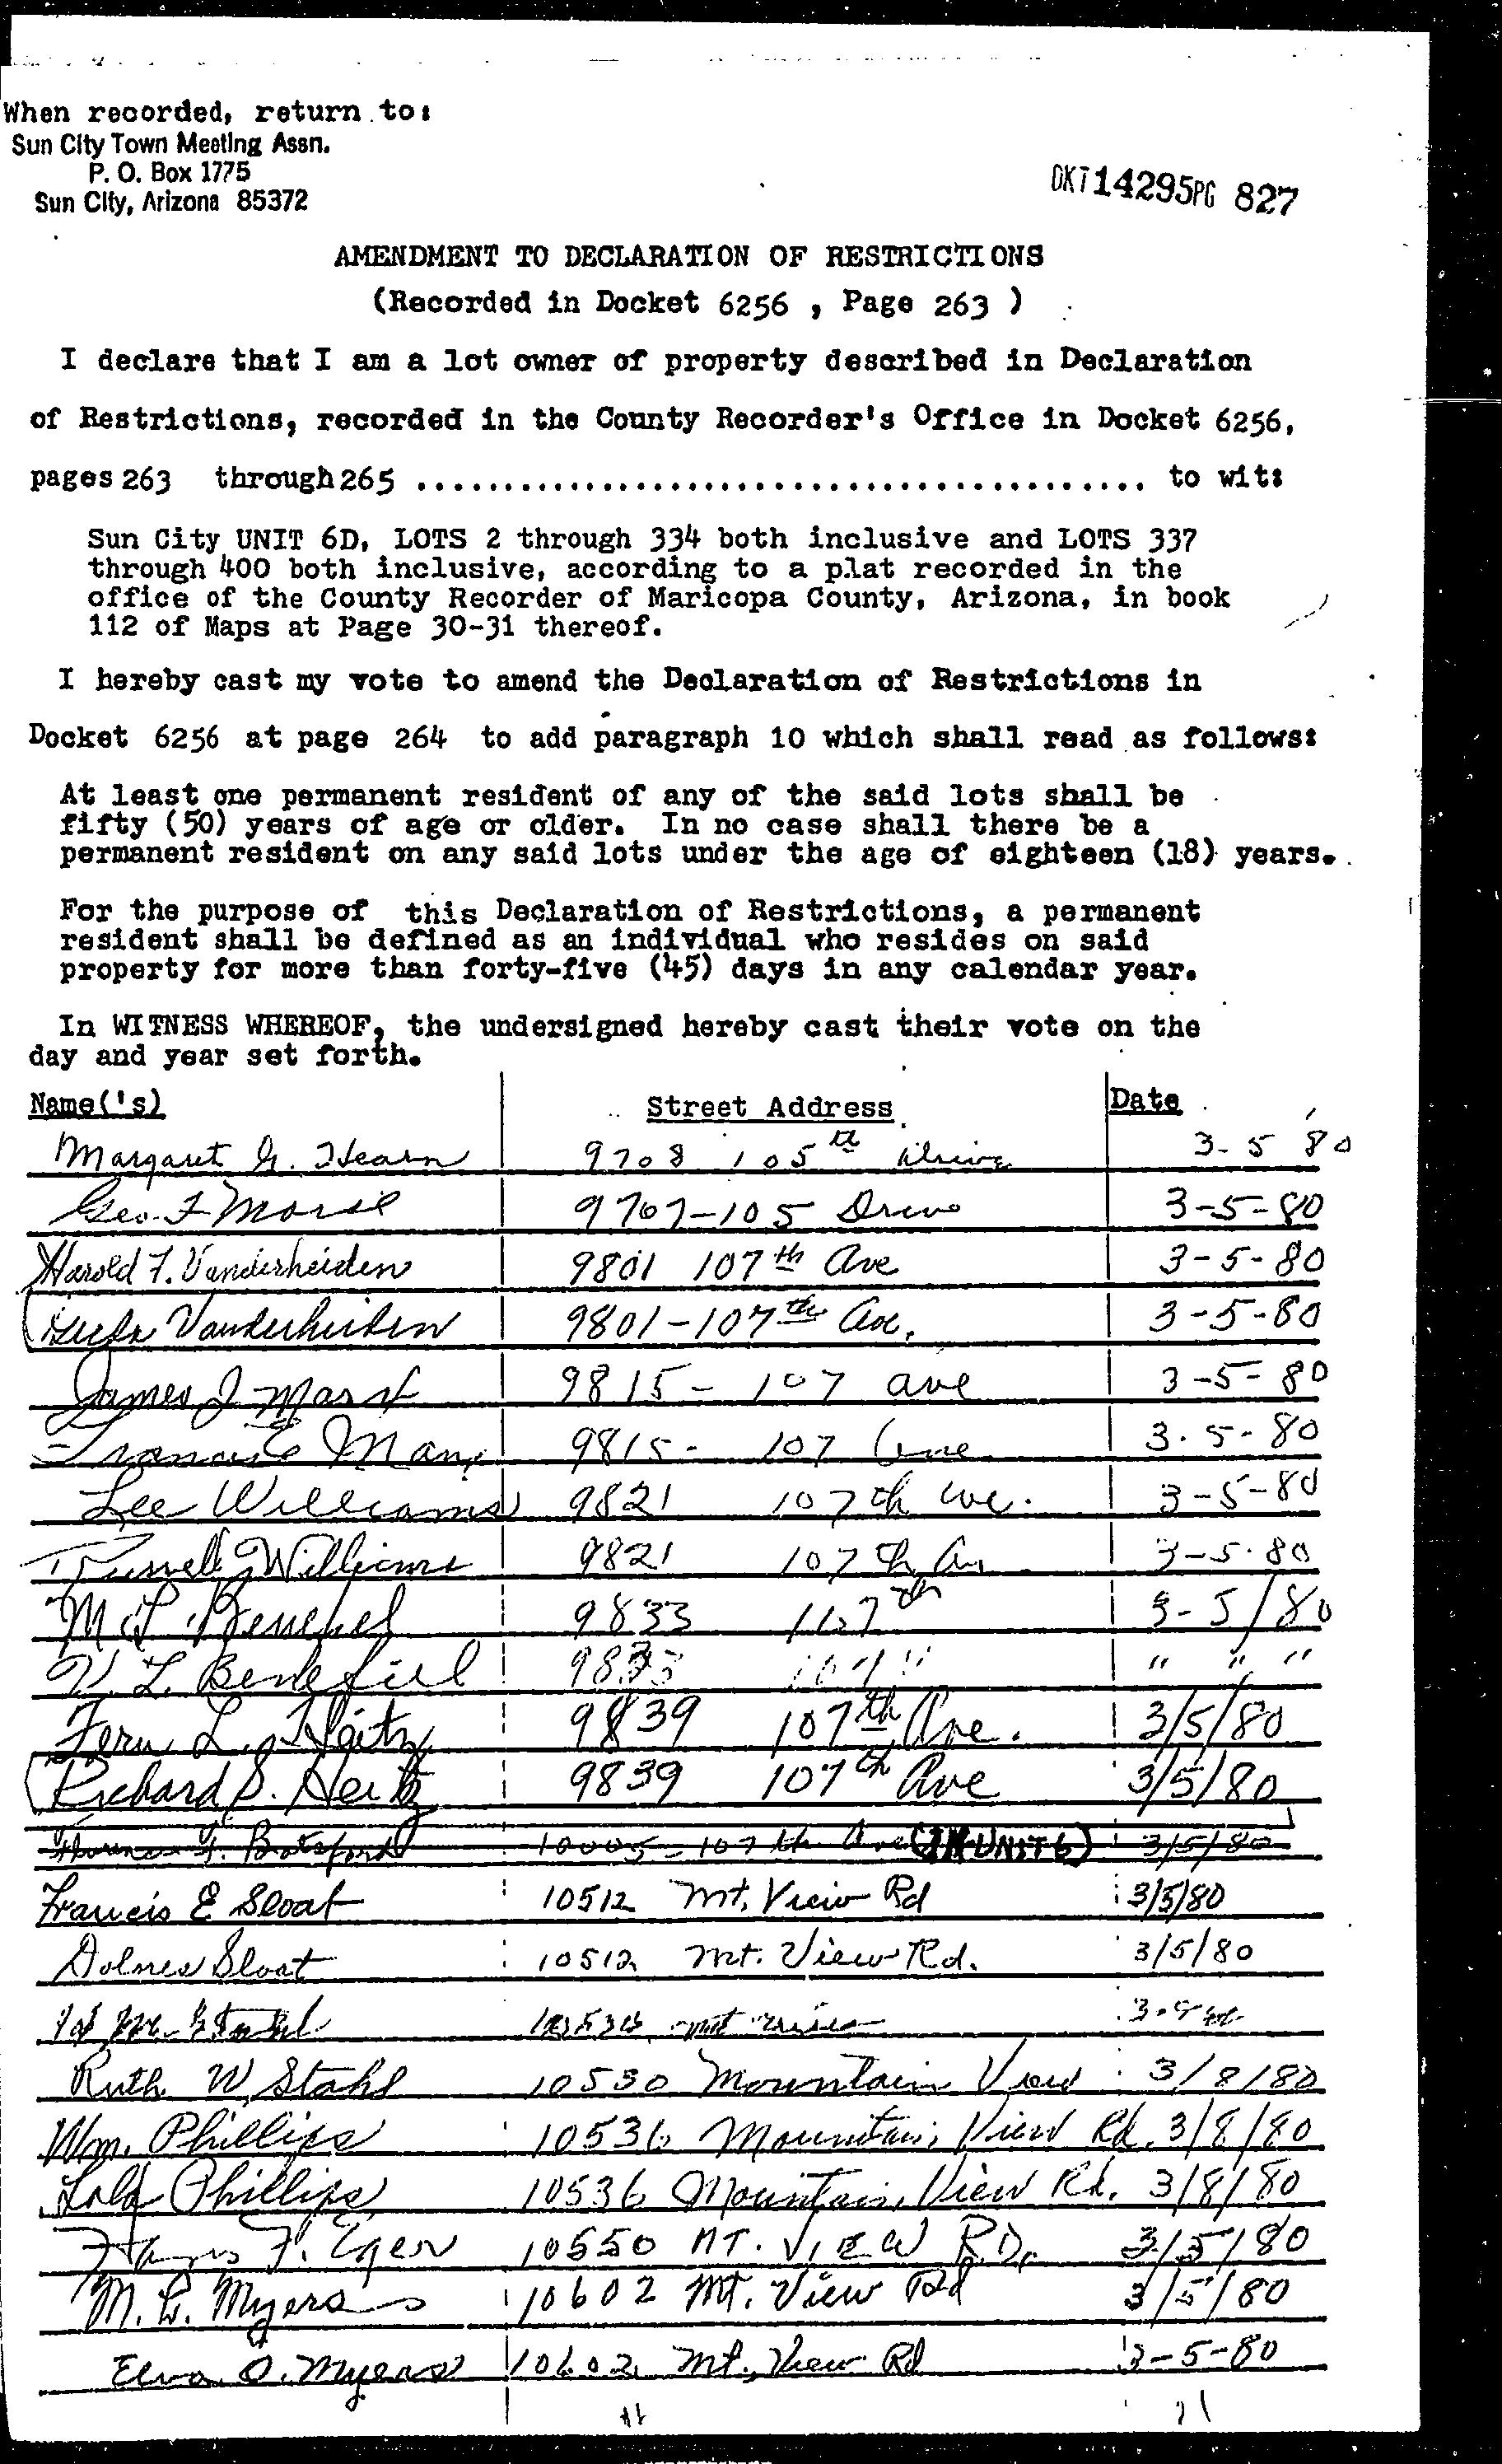 When recorded, return to:
Sun City Town Meeting Assn.
P. O. Box 1775
Sun City, Arizona 85372
DKT 14295 PG 827
AMENDMENT TO DECLARATION OF RESTRICTIONS
(Recorded in Docket 6256 , Page 263 )
I declare that I am a lot owner of property described in Declaration
of Restrictions, recorded in the County Recorder's Office in Docket 6256,
pages 263 through 265 ............................................ to wit:
Sun City UNIT 6D, LOTS 2 through 334 both inclusive and LOTS 337
through 400 both inclusive, according to a plat recorded in the
office of the County Recorder of Maricopa County, Arizona, in book
112 of Maps at Page 30-31 thereof.
I hereby cast my vote to amend the Declaration of Restrictions in
Docket 6256 at page 264 to add paragraph 10 which shall read as follows:
At least one permanent resident of any of the said lots shall be
fifty (50) years of age or older. In no case shall there be a
permanent resident on any said lots under the age of eighteen (18) years.
For the purpose of this Declaration of Restrictions, a permanent
resident shall be defined as an individual who resides on said
property for more than forty-five (45) days in any calendar year.
In WITNESS WHEREOF, the undersigned hereby cast their vote on the
day and year set forth.
Name('s) Street Address Date
Margaret G. Hearn 9708 105th Drive 3-5 80
Geo. F Morse 9707-105 Drive 3-5-80
Harold F. Vanderheiden 9801 107th Ave 3-5-80
Vanderheiden 9801-107th Ave. 3-5-80
James J 9815- 107 ave 3-5-80
9815- 107 Ave 3.5-80
Lee Williams 9821 107th Ave. 3-5-80
Russell Williams 9821 107th Av 3-5.80
M 9833 107th 3-5/80
V. L. Benefiel 9833 107 " " " "
Fern L. Heitz 9839 107th Ave. 3/5/80
Richard S. Heitz 9839 107th Ave 3/5/80
Florence G. Botsford 10005-107th Ave (IN UNIT 6) 3/5/80
Francis E Sloat 10512 Mt. View Rd 3/5/80
Dolores Sloat 10512 Mt. View Rd. 3/5/80
Stahl mt view
Ruth W Stahl 10530 Mountain View 3/8/80
Wm. Phillips 10536 Mountain View Rd. 3/8/80
Lola Phillips 10536 Mountain View Rd. 3/8/80
F. Eger 10550 MT. VIEW RD. 3/5/80
M. L. Myers 10602 Mt. View Rd 3/5/80
Elva O. Myers 10602 Mt. View Rd 3-5-80